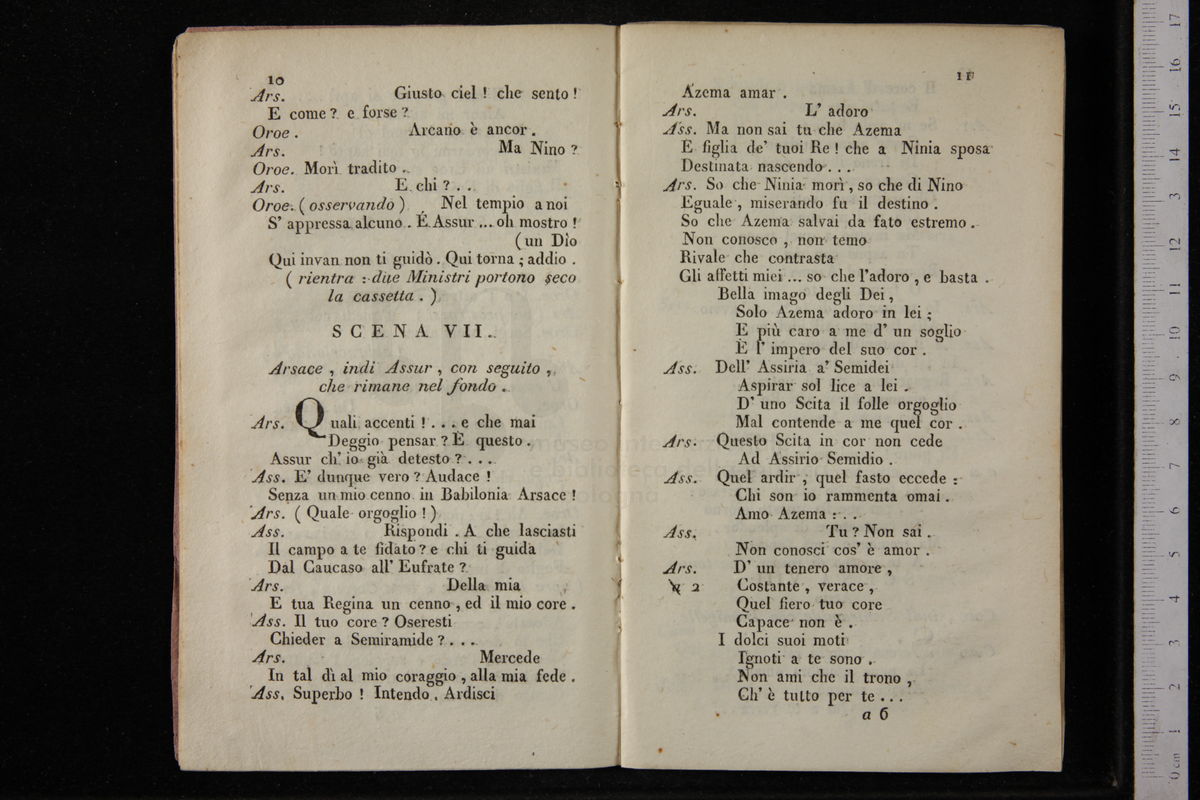 10
Ars. Giusto ciel ! che sento !
E come ? e forse ?
Oroe . Arcano è ancor .
Ars. Ma Nino ?
Oroe. Morì tradito .
Ars. E chi ? . .
Oroe. ( osservando ) Nel tempio a noi
S' appressa alcuno . È Assur ... oh mostro !
( un Dio
Qui invan non ti guidò . Qui torna ; addio .
( rientra : due Ministri portono seco
la cassetta . )
SCENA VII.
Arsace , indi Assur , con seguito ,
che rimane nel fondo .
Ars. Quali accenti ! . . . e che mai
Deggio pensar ? È questo .
Assur ch' io già detesto ? . . .
Ass. E' dunque vero ? Audace !
Senza un mio cenno in Babilonia Arsace !
Ars. ( Quale orgoglio ! )
Ass. Rispondi . A che lasciasti
Il campo a te fidato ? e chi ti guida
Dal Caucaso all' Eufrate ?
Ars. Della mia
E tua Regina un cenno , ed il mio core .
Ass. Il tuo core ? Oseresti
Chieder a Semiramide ? . . .
Ars. Mercede
In tal dì al mio coraggio , alla mia fede .
Ass. Superbo ! Intendo . Ardisci
11
Azema amar .
Ars. L' adoro
Ass. Ma non sai tu che Azema
E figlia de' tuoi Re ! che a Ninia sposa
Destinata nascendo . . .
Ars. So che Ninia morì , so che di Nino
Eguale , miserando fu il destino .
So che Azema salvai da fato estremo .
Non conosco , non temo
Rivale che contrasta
Gli affetti miei ... so che l'adoro , e basta .
Bella imago degli Dei ,
Solo Azema adoro in lei ;
E più caro a me d' un soglio
È l' impero del suo cor .
Ass. Dell' Assiria a' Semidei
Aspirar sol lice a lei .
D' uno Scita il folle orgoglio
Mal contende a me quel cor .
Ars. Questo Scita in cor non cede
Ad Assirio Semidio .
Ass. Quel ardir , quel fasto eccede :
Chi son io rammenta omai .
Amo Azema : . .
Ass. Tu ? Non sai .
Non conosci cos' è amor .
Ars. D' un tenero amore ,
2 Costante , verace ,
Quel fiero tuo core
Capace non è .
I dolci suoi moti
Ignoti a te sono .
Non ami che il trono ,
Ch' è tutto per te . . .
a 6